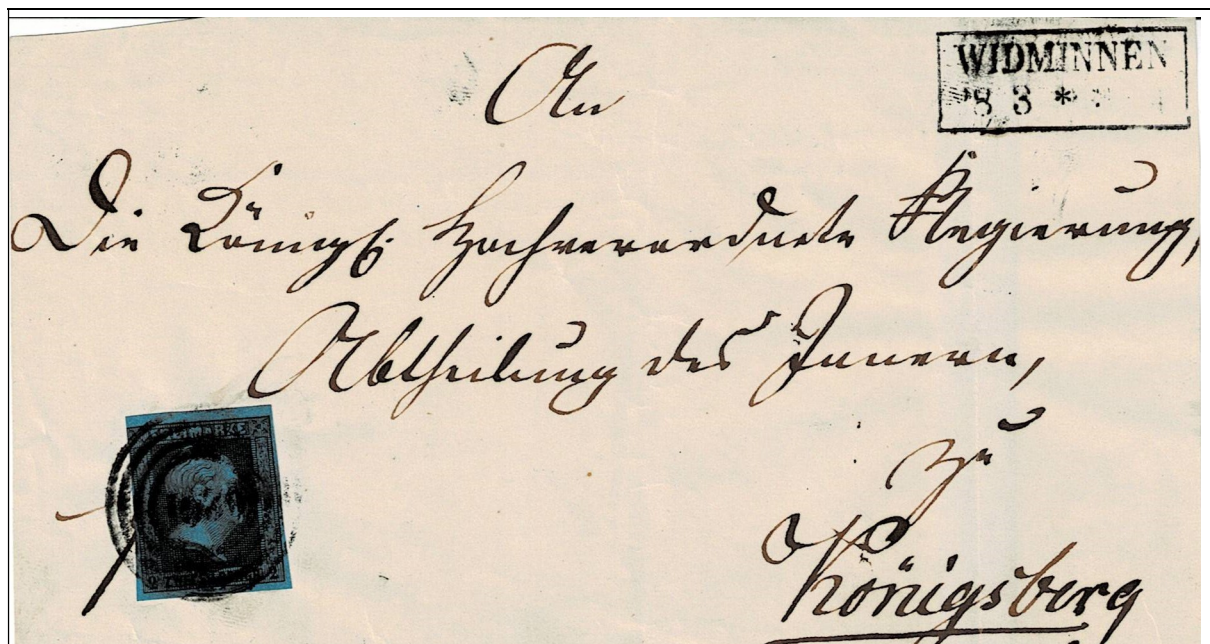 WIDMINNEN
8 3 *
An
Die Königl. Hochverordnete Regierung,
Abtheilung des Innern,
zu
Königsberg